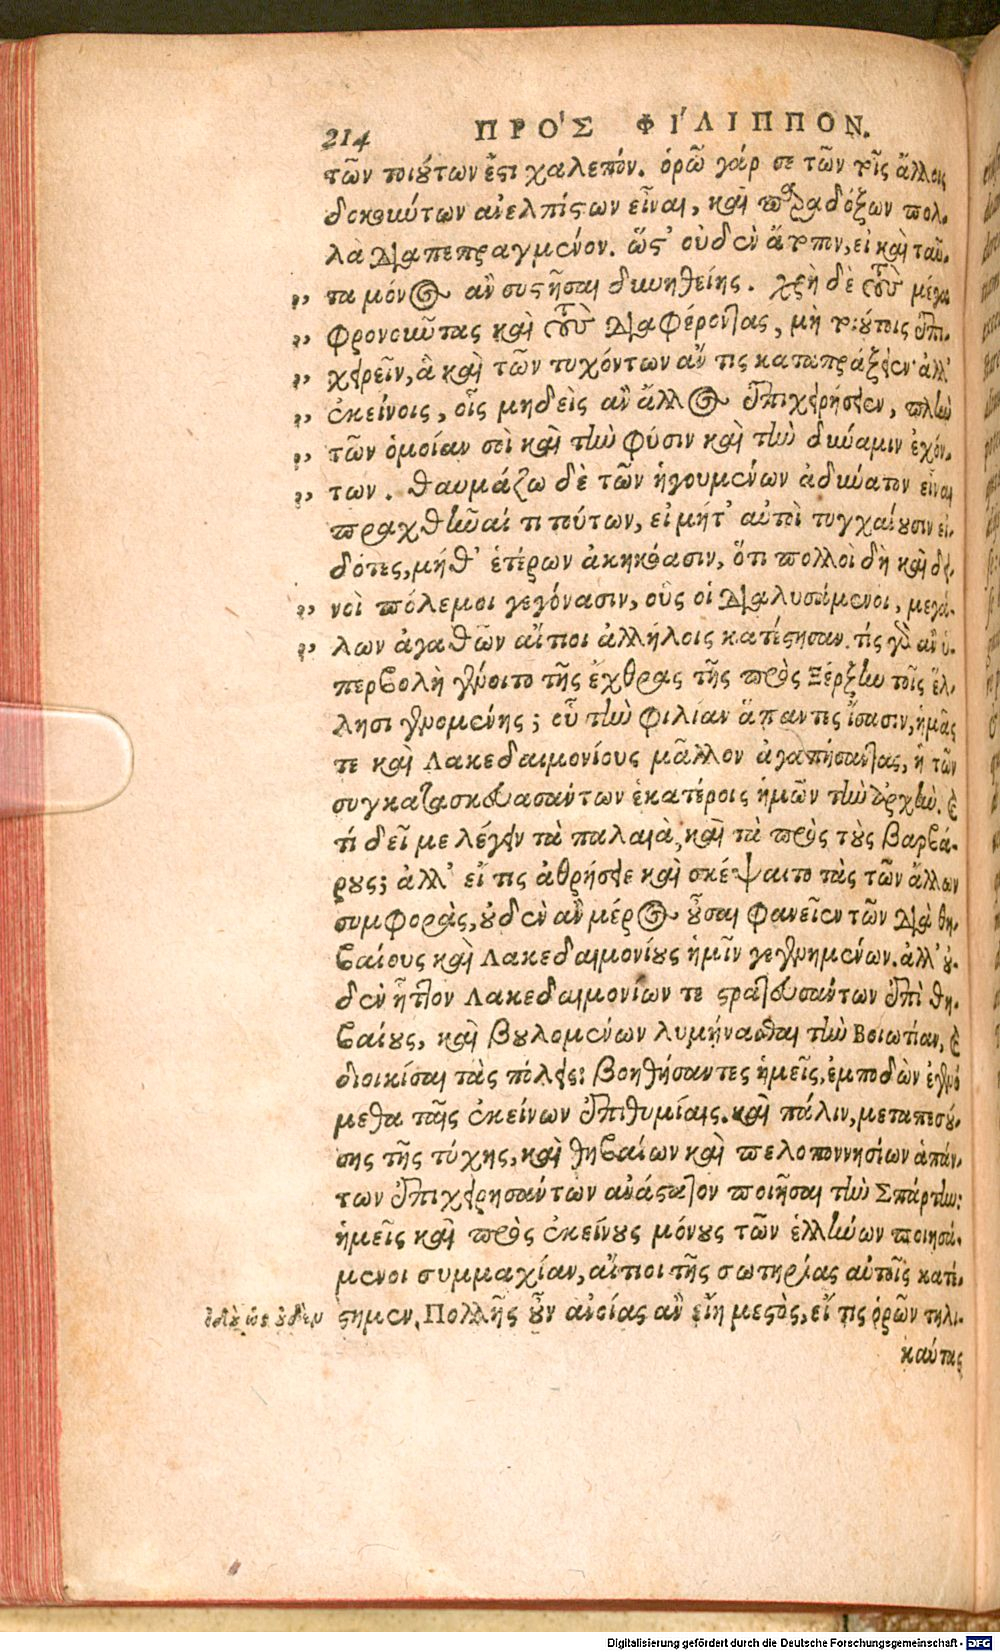 214 ΠΡΟ'Σ ΦΙ'ΛΙΠΠΟΝ.
τῶν τοιούτων ἐστὶ χαλεπόν. ὁρῶ γάρ σε τῶν τοῖς ἄλλοις
δοκούντων ἀνελπίστων εἶναι, καὶ παραδόξων πολ-
λὰ διαπεπραγμένον. ὥστ' οὐδὲν ἄτοπον, εἰ καὶ ταῦ-
„ τα μόνος ἂν συστῆσαι δυνηθείης. χρὴ δὲ τοὺς μέγα
„ φρονοῦντας καὶ τοὺς διαφέροντας, μὴ τοιούτοις ἐπι-
„ χειρεῖν, ἃ καὶ τῶν τυχόντων ἄν τις καταπράξειεν· ἀλλ'
„ ἐκείνοις, οἷς μηδεὶς ἂν ἄλλος ἐπιχειρήσειεν, πλὴν
„ τῶν ὁμοίαν σοὶ καὶ τὴν φύσιν καὶ τὴν δύναμιν ἐχόν-
„ των. Θαυμάζω δὲ τῶν ἡγουμένων ἀδύνατον εἶναι
πραχθῆναί τι τούτων, εἰ μήτ' αὐτοὶ τυγχάνουσιν εἰ-
δότες, μήθ' ἑτέρων ἀκηκόασιν, ὅτι πολλοὶ δὴ καὶ δει-
„ νοὶ πόλεμοι γεγόνασιν, οὓς οἱ διαλυσάμενοι, μεγά-
„ λων ἀγαθῶν αἴτιοι ἀλλήλοις κατέστησαν. τίς γὰρ ἂν ὑ-
περβολὴ γένοιτο τῆς ἔχθρας τῆς πρὸς Ξέρξην τοῖς ἕλ-
λησι γενομένης; οὗ τὴν φιλίαν ἅπαντες ἴσασιν, ἡμᾶς
τε καὶ Λακεδαιμονίους μᾶλλον ἀγαπήσαντας, ἢ τῶν
συγκατασκευασάντων ἑκατέροις ἡμῶν τὴν ἀρχήν. καὶ
τί δεῖ με λέγειν τὰ παλαιὰ, καὶ τὰ πρὸς τοὺς βαρβά-
ρους; ἀλλ' εἴ τις ἀθρήσειε καὶ σκέψαιτο τὰς τῶν ἄλλων
συμφορὰς, οὐδὲν ἂν μέρος οὖσαι φανεῖεν τῶν διὰ θη-
βαίους καὶ Λακεδαιμονίους ἡμῖν γεγενημένων. ἀλλ' οὐ-
δὲν ἧττον Λακεδαιμονίων τε στρατευσάντων ἐπὶ θη-
βαίους, καὶ βουλομένων λυμήνασθαι τὴν Βοιωτίαν, καὶ
διοικίσαι τὰς πόλεις: βοηθήσαντες ἡμεῖς, ἐμποδὼν ἐγενό
μεθα ταῖς ἐκείνων ἐπιθυμίαις. καὶ πάλιν, μεταπεσού-
σης τῆς τύχης, καὶ θηβαίων καὶ πελοποννησίων ἁπάν-
των ἐπιχειρησάντων ἀνάστατον ποιῆσαι τὴν Σπάρτην:
ἡμεῖς καὶ πρὸς ἐκείνους μόνους τῶν ἑλλήνων ποιησά-
μενοι συμμαχίαν, αἴτιοι τῆς σωτηρίας αὐτοῖς κατέ-
στημεν. Πολλῆς οὖν ἀνοίας ἂν εἴη μεστὸς, εἴ τις ὁρῶν τηλι-
καύτας
Digitalisierung gefördert durch die Deutsche Forschungsgemeinschaft - DFG